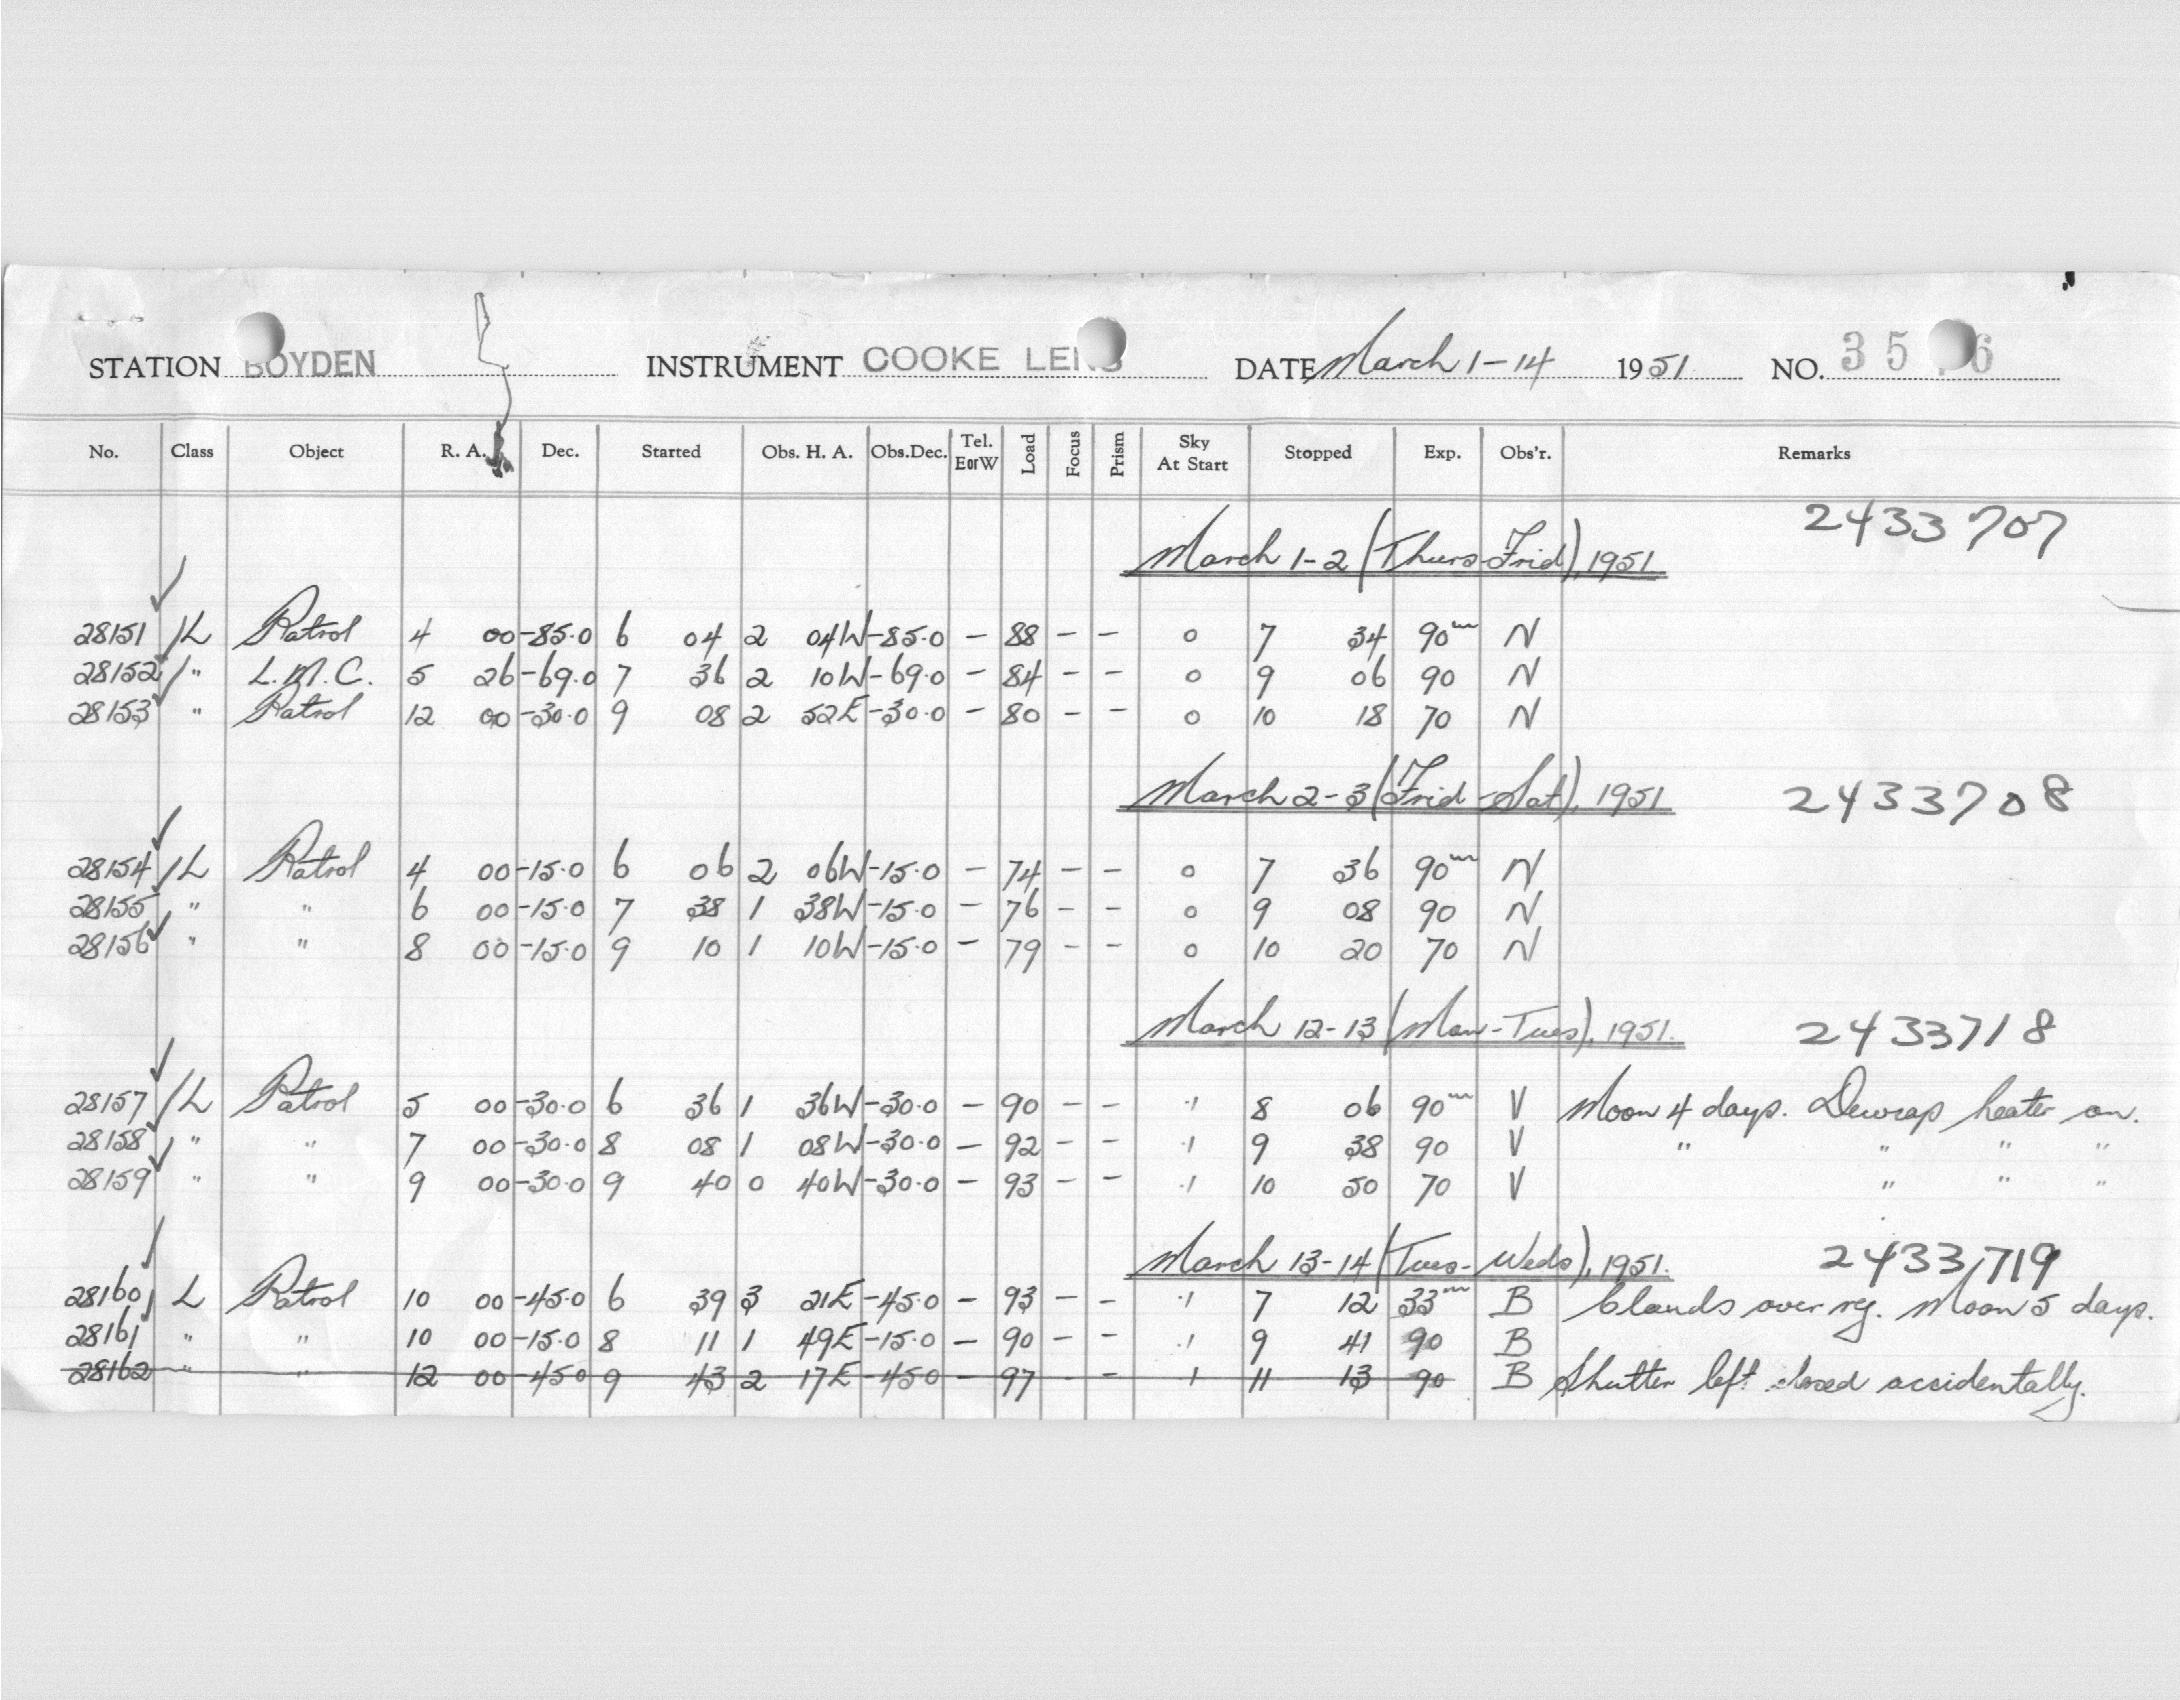 STATION BOYDEN INSTRUMENT COOKE LENS DATE March 1-14 1951 NO. 35 6
No. Class Object R. A. Dec. Started Obs. H. A. Obs.Dec. Tel. EorW Load Focus Prism Sky At Start Stopped Exp. Obs'r. Remarks
March 1-2 (Thurs-Frid), 1951. 2433707
28151 L Patrol 4 00 -85.0 6 04 2 04W -85.0 - 88 - - 0 7 34 90m N
28152 " L.M.C. 5 26 -69.0 7 36 2 10W -69.0 - 84 - - 0 9 06 90 N
28153 " Patrol 12 00 -30.0 9 08 2 52E -30.0 - 80 - - 0 10 18 70 N
March 2-3 (Frid-Sat), 1951 2433708
28154 L Patrol 4 00 -15.0 6 06 2 06W -15.0 - 74 - - 0 7 36 90m N
28155 " " 6 00 -15.0 7 38 1 38W -15.0 - 76 - - 0 9 08 90 N
28156 " " 8 00 -15.0 9 10 1 10W -15.0 - 79 - - 0 10 20 70 N
March 12-13 (Mon-Tues), 1951. 2433718
28157 L Patrol 5 00 -30.0 6 36 1 36W -30.0 - 90 - - .1 8 06 90m V Moon 4 days. Dewcap heater on.
28158 " " 7 00 -30.0 8 08 1 08W -30.0 - 92 - - .1 9 38 90 V " " " "
28159 " " 9 00 -30.0 9 40 0 40W -30.0 - 93 - - .1 10 50 70 V " " "
March 13-14 (Tues-Weds), 1951. 2433719
28160 L Patrol 10 00 -45.0 6 39 3 21E -45.0 - 93 - - .1 7 12 33m B Clouds over reg. Moon 5 days.
28161 " " 10 00 -15.0 8 11 1 49E -15.0 - 90 - - .1 9 41 90 B
28162 " " 12 00 -45.0 9 43 2 17E -45.0 - 97 - - .1 11 13 90 B Shutter left closed accidentally.